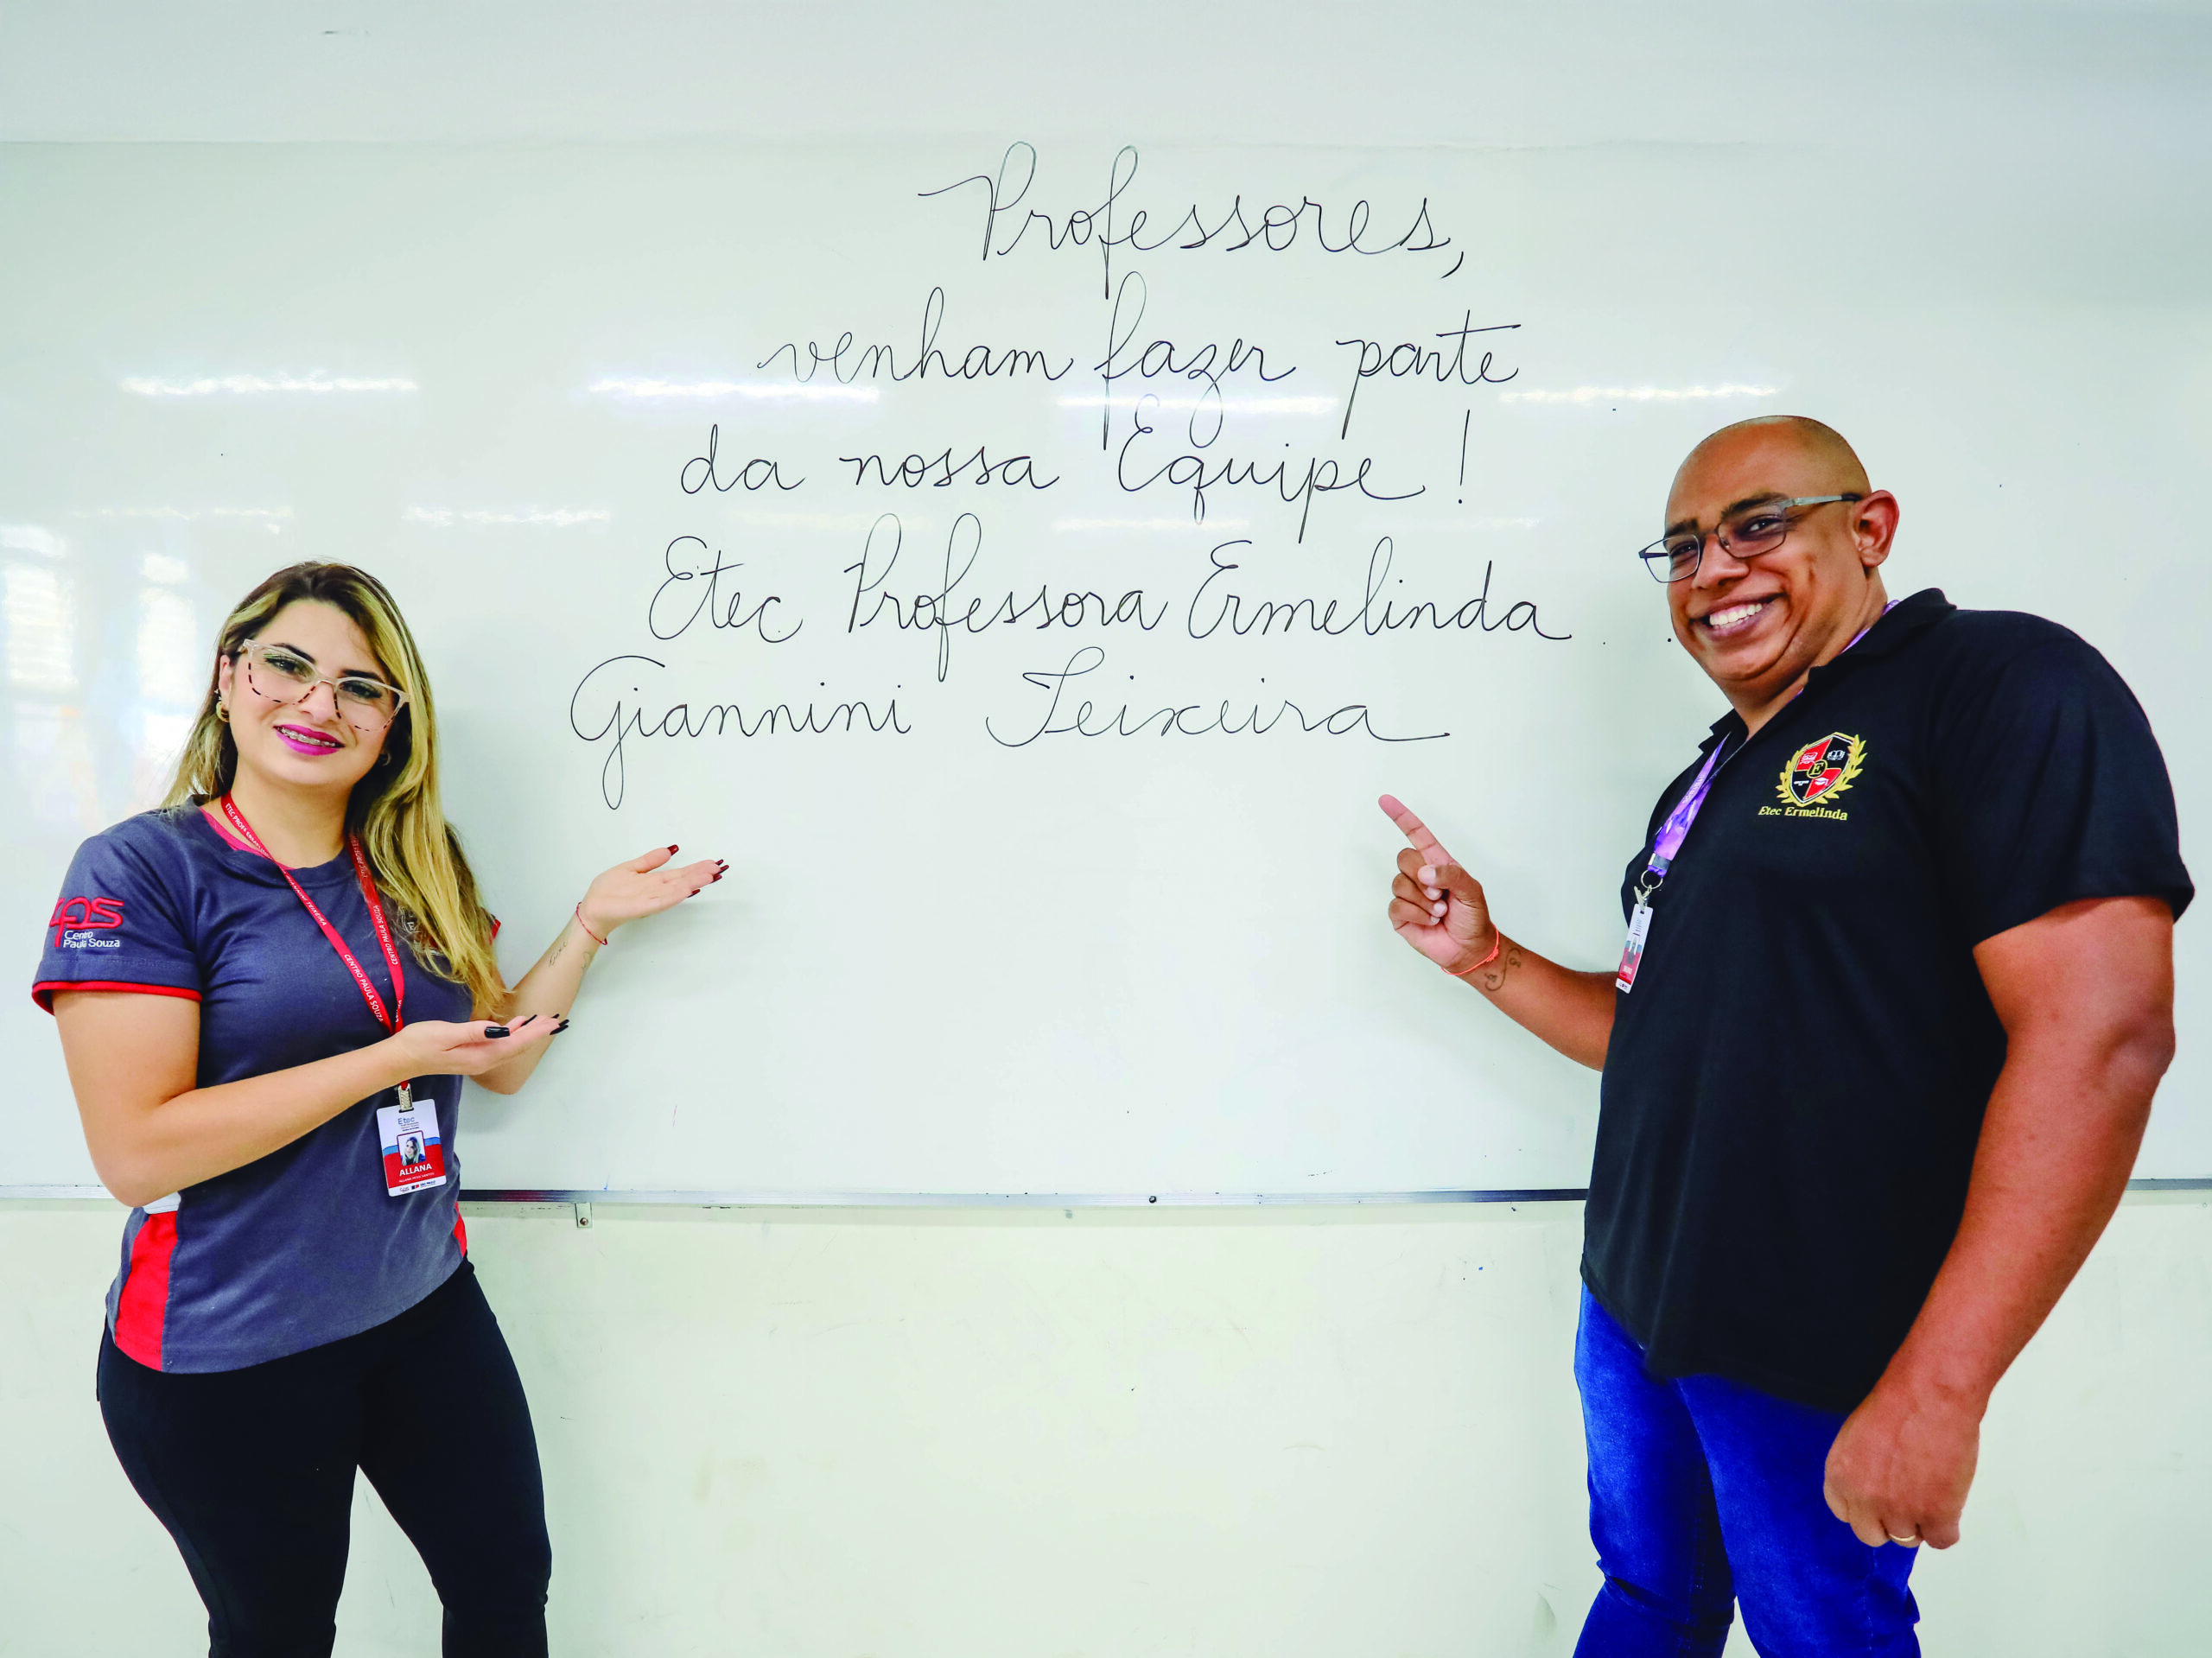 Professores,
venham fazer parte
da nossa Equipe!
Etec Professora Ermelinda
Giannini Teixeira
E
Etec Ermelinda
cps
Centro
Paula Souza
CENTRO PAULA SOUZA
Etec
ALLANA